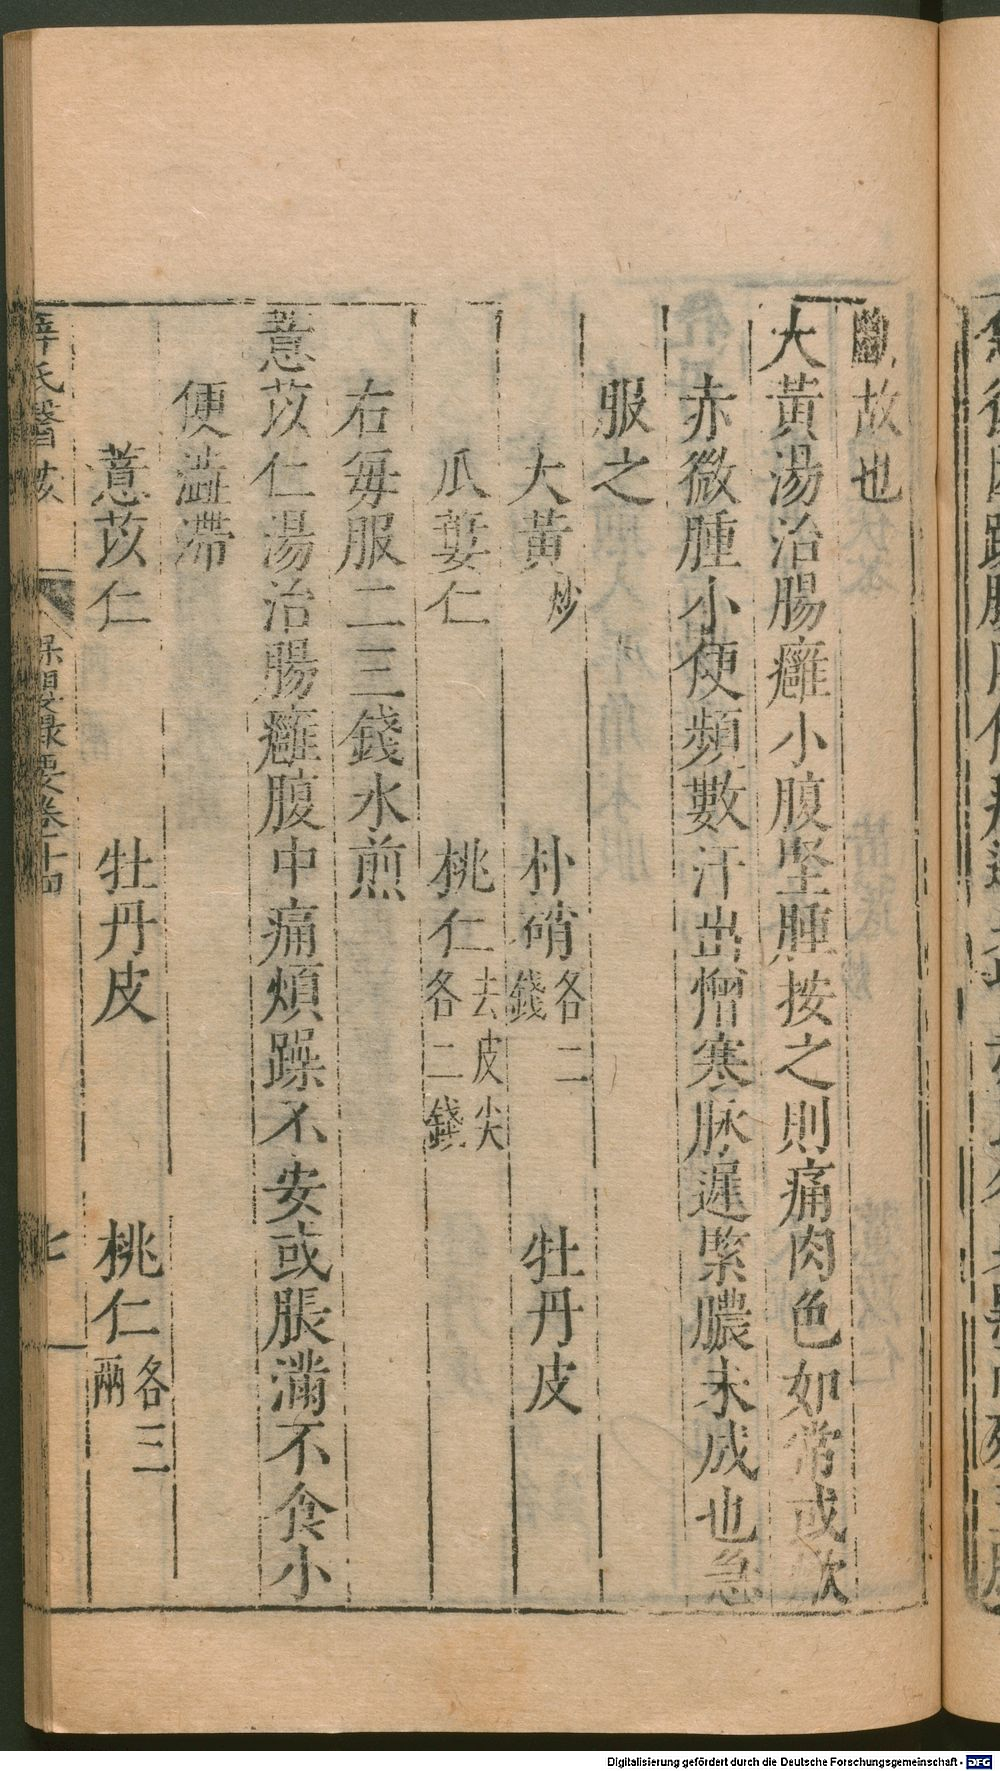 故也
大黃湯治腸癰小腹堅腫按之則痛肉色如常或焮
赤微腫小便頻數汗出憎寒脉遲緊膿未成也急
服之
大黃炒　朴硝各二錢　牡丹皮
瓜蔞仁　桃仁去皮尖各二錢
右每服二三錢水煎
薏苡仁湯治腸癰腹中痛煩躁不安或脹滿不食小
便澁滯
薏苡仁　牡丹皮　桃仁各三兩
薛氏醫　保嬰撮要卷十四　七
Digitalisierung gefördert durch die Deutsche Forschungsgemeinschaft - DFG